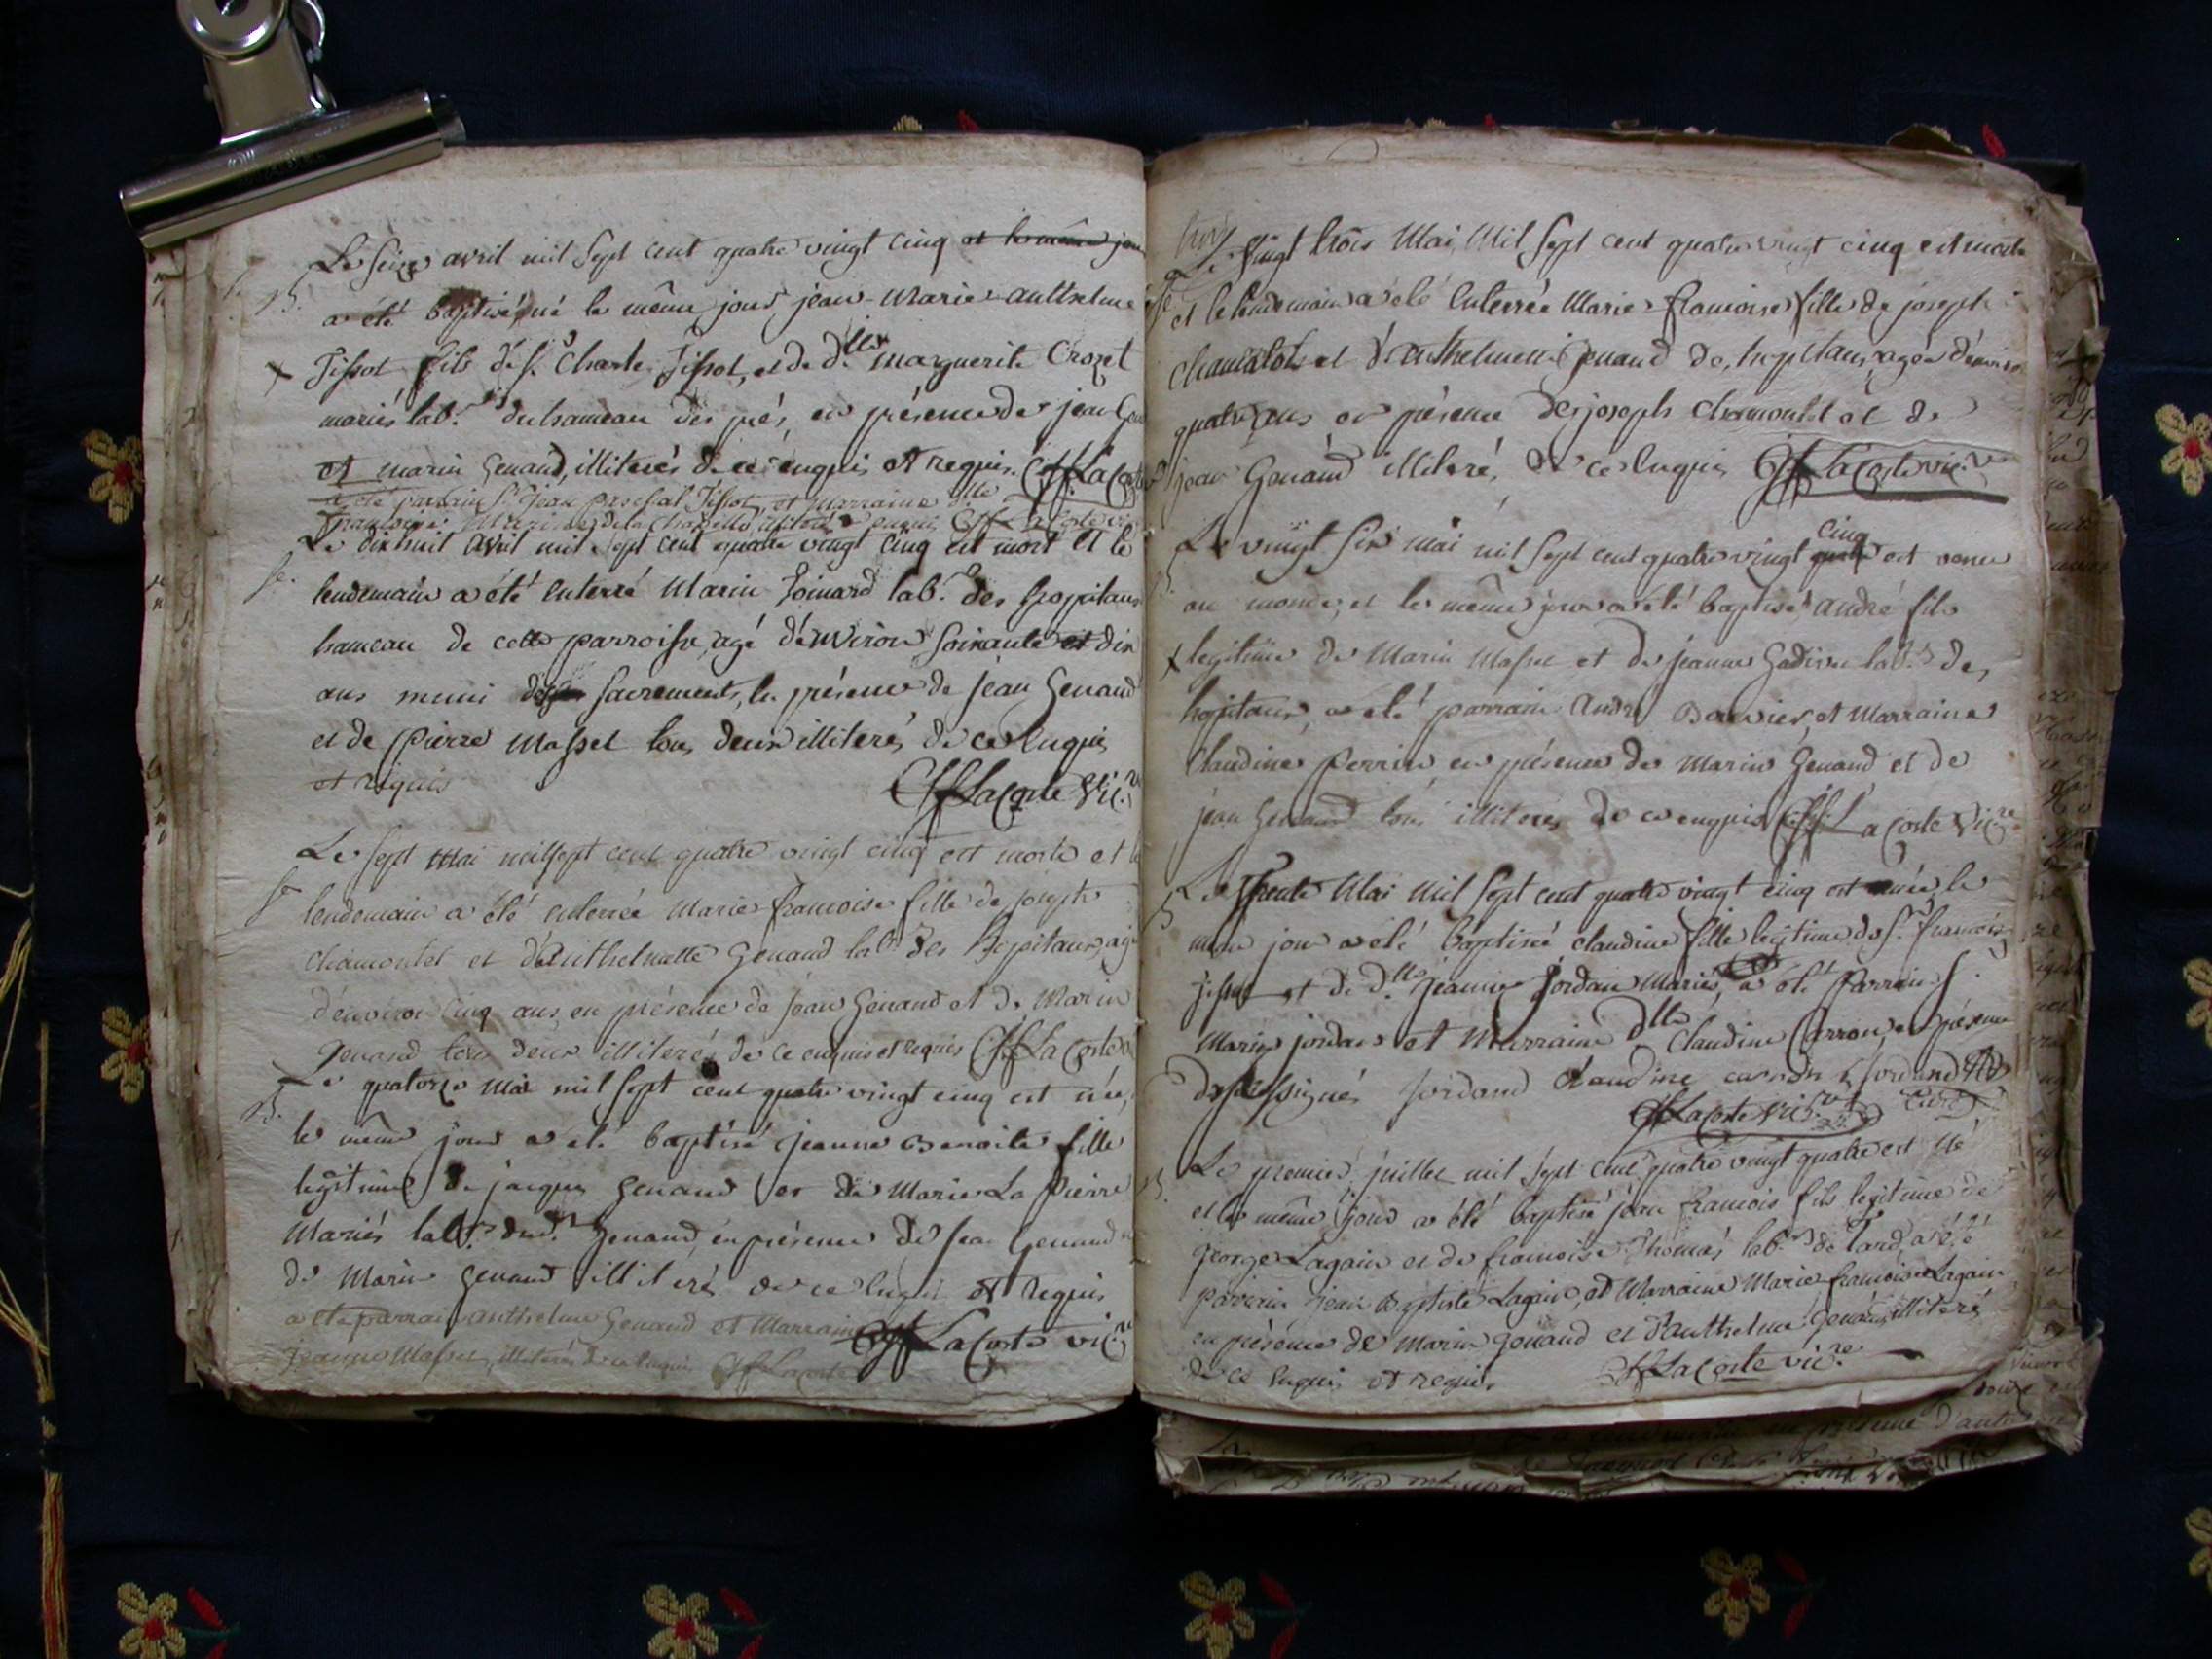 Le seize avril mil sept cent quatre vingt cinq et le même jou
B. a été baptisé, né le même jour jean-Marie-anthelme
x Tissot fils de s.r Charle Tissot, et de d.lle marguerite Crozet
mariés lab.rs du hameau des prés, en présence de jean Gen
et marin Genand, illiterés de ce enquis et requis. Lacoste
a été parrain s.r Jean Tissot, et Marraine dlle
françoise de la
Le dixhuit avril mil sept cent quatre vingt cinq est mort et le
Se. lendemain a été enterré Marin Goinard lab.r des hopitaux
hameau de cette parroisse, agé d'environ soixante et dix
ans muni des sacrements, en présence de jean Genand
et de Pierre Masset tous deux illiterés de ce enquis
et requis Lacoste Vic.re
Le sept mai mil sept cent quatre vingt cinq est morte et le
Se lendemain a été enterrée Marie françoise fille de joseph
chamontet et d'anthelmette Genand lab.rs des hopitaux, agée
d'environ cinq ans, en présence de jean Genand et de Marin
Genand tous deux illiterés de ce enquis et requis Lacoste v
Le quatorze mai mil sept cent quatre vingt cinq est née,
B. le même jour a été baptisé jeanne Benoite fille
legitime de jacques Genand et de Marie La Pierre
Mariés lab.rs Genand, en présence de jean Genand
de Marin Genand illiterés de ce enquis et requis
a été parrain anthelme Genand et Marraine Lacoste vic.re
jeanne Masset, illiterés de ce enquis Lacoste
trois
Le Vingt trois Mai, Mil sept cent quatre vingt cinq est morte
Se et le lendemain a été enterrée Marie françoise fille de joseph
et d'anthelmette Genand des hopitaux, agée d'environ
quatre ans en présence de joseph chamontet et de
jean Genand illiteré, de ce enquis Lacoste vic.re
Le vingt six mai mil sept cent quatre vingt cinq est venu
B. au monde, et le même jour a été baptisé andré fils
x legitime de Marin Masset et de jeanne Gadin lab.rs des
hopitaux, a été parrain andré Bouvier, et Marraine
Claudine Perrin, en présence de Marin Genand et de
jean Genand tous illiterés de ce enquis Lacoste Vic.re
Le Trente Mai Mil sept cent quatre vingt cinq est née, le
B. meme jour a été baptisée claudine fille legitime de s.r françois
Tissot et de d.lle jeanne Jordan Mariés, a été Parrain s.
Marin jordan et Marraine dlle Claudine Carron, en présence
des soussignés Jordand Claudine carron Jordand
Lacoste Vic.re Curé
Le premier juillet mil sept cent quatre vingt quatre est né
B. et le même jour a été baptisé jean françois fils legitime de
george Lagain et de françoise Thomas lab.rs de Lard, a été
parrain jean Baptiste Lagain, et Marraine Marie françoise Lagain
en présence de Marin genand et d'anthelme genand, illiterés
de ce enquis et requis Lacoste vic.re